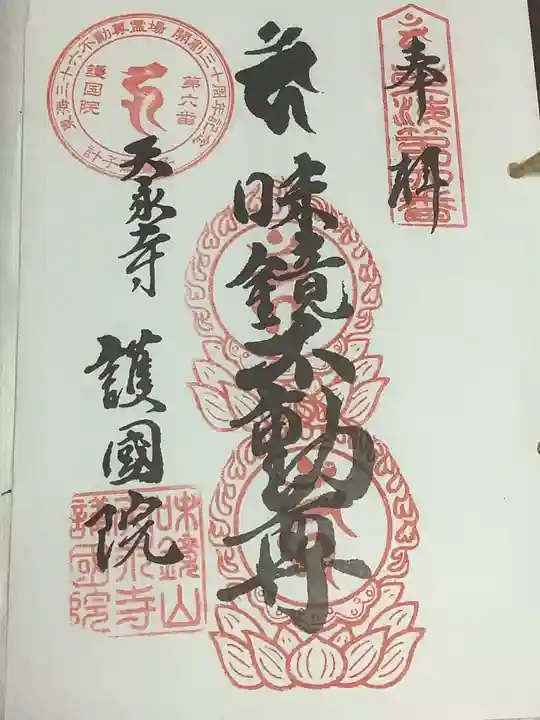 奉拝
味鏡不動尊
天永寺
護國院
東海三十六不動尊霊場 開創三十周年記念
第六番
護国院
味鏡山
天永寺
護国院